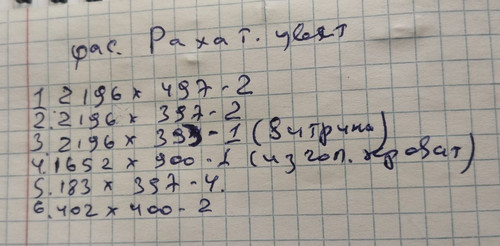 фас. Рахат. цвет
1. 2196 × 497 - 2
2. 2196 × 397 - 2
3 2196 × 393 - 1 (витрина)
4. 1652 × 900 - 1 (изгол. кроват)
5. 183 × 397 - 4.
6. 402 × 400 - 2